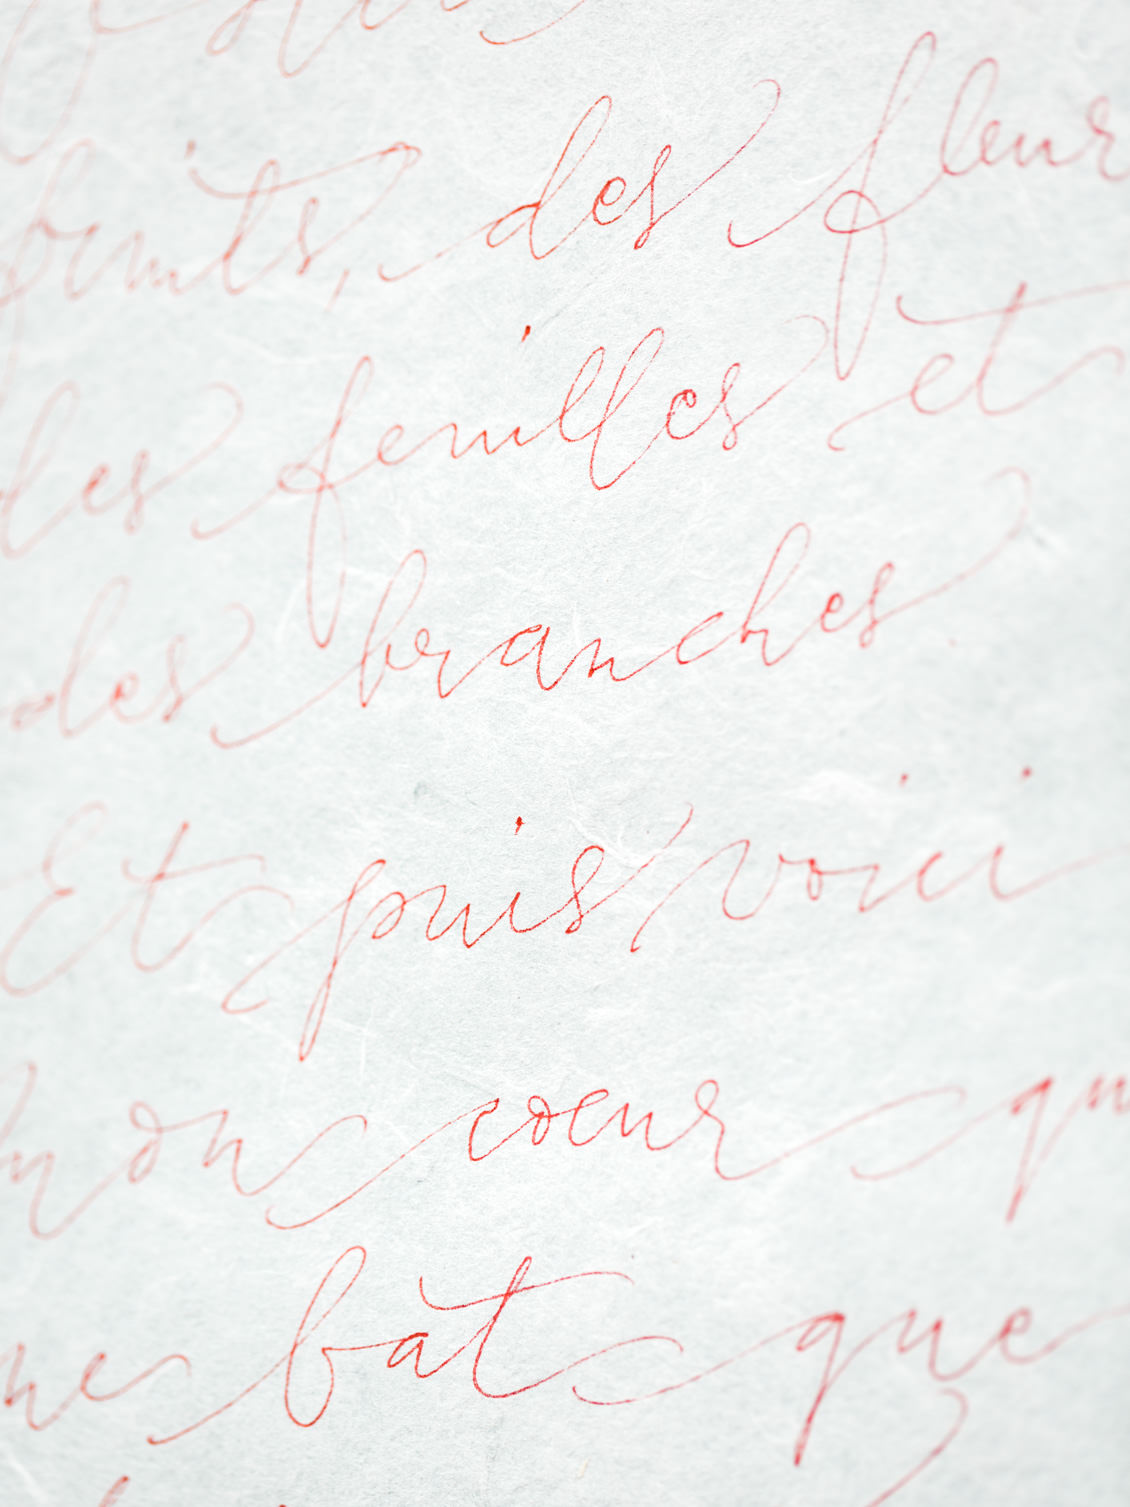 fruits, des fleur
des feuilles et
des branches
Et puis voici
mon cœur qu
ne bat que